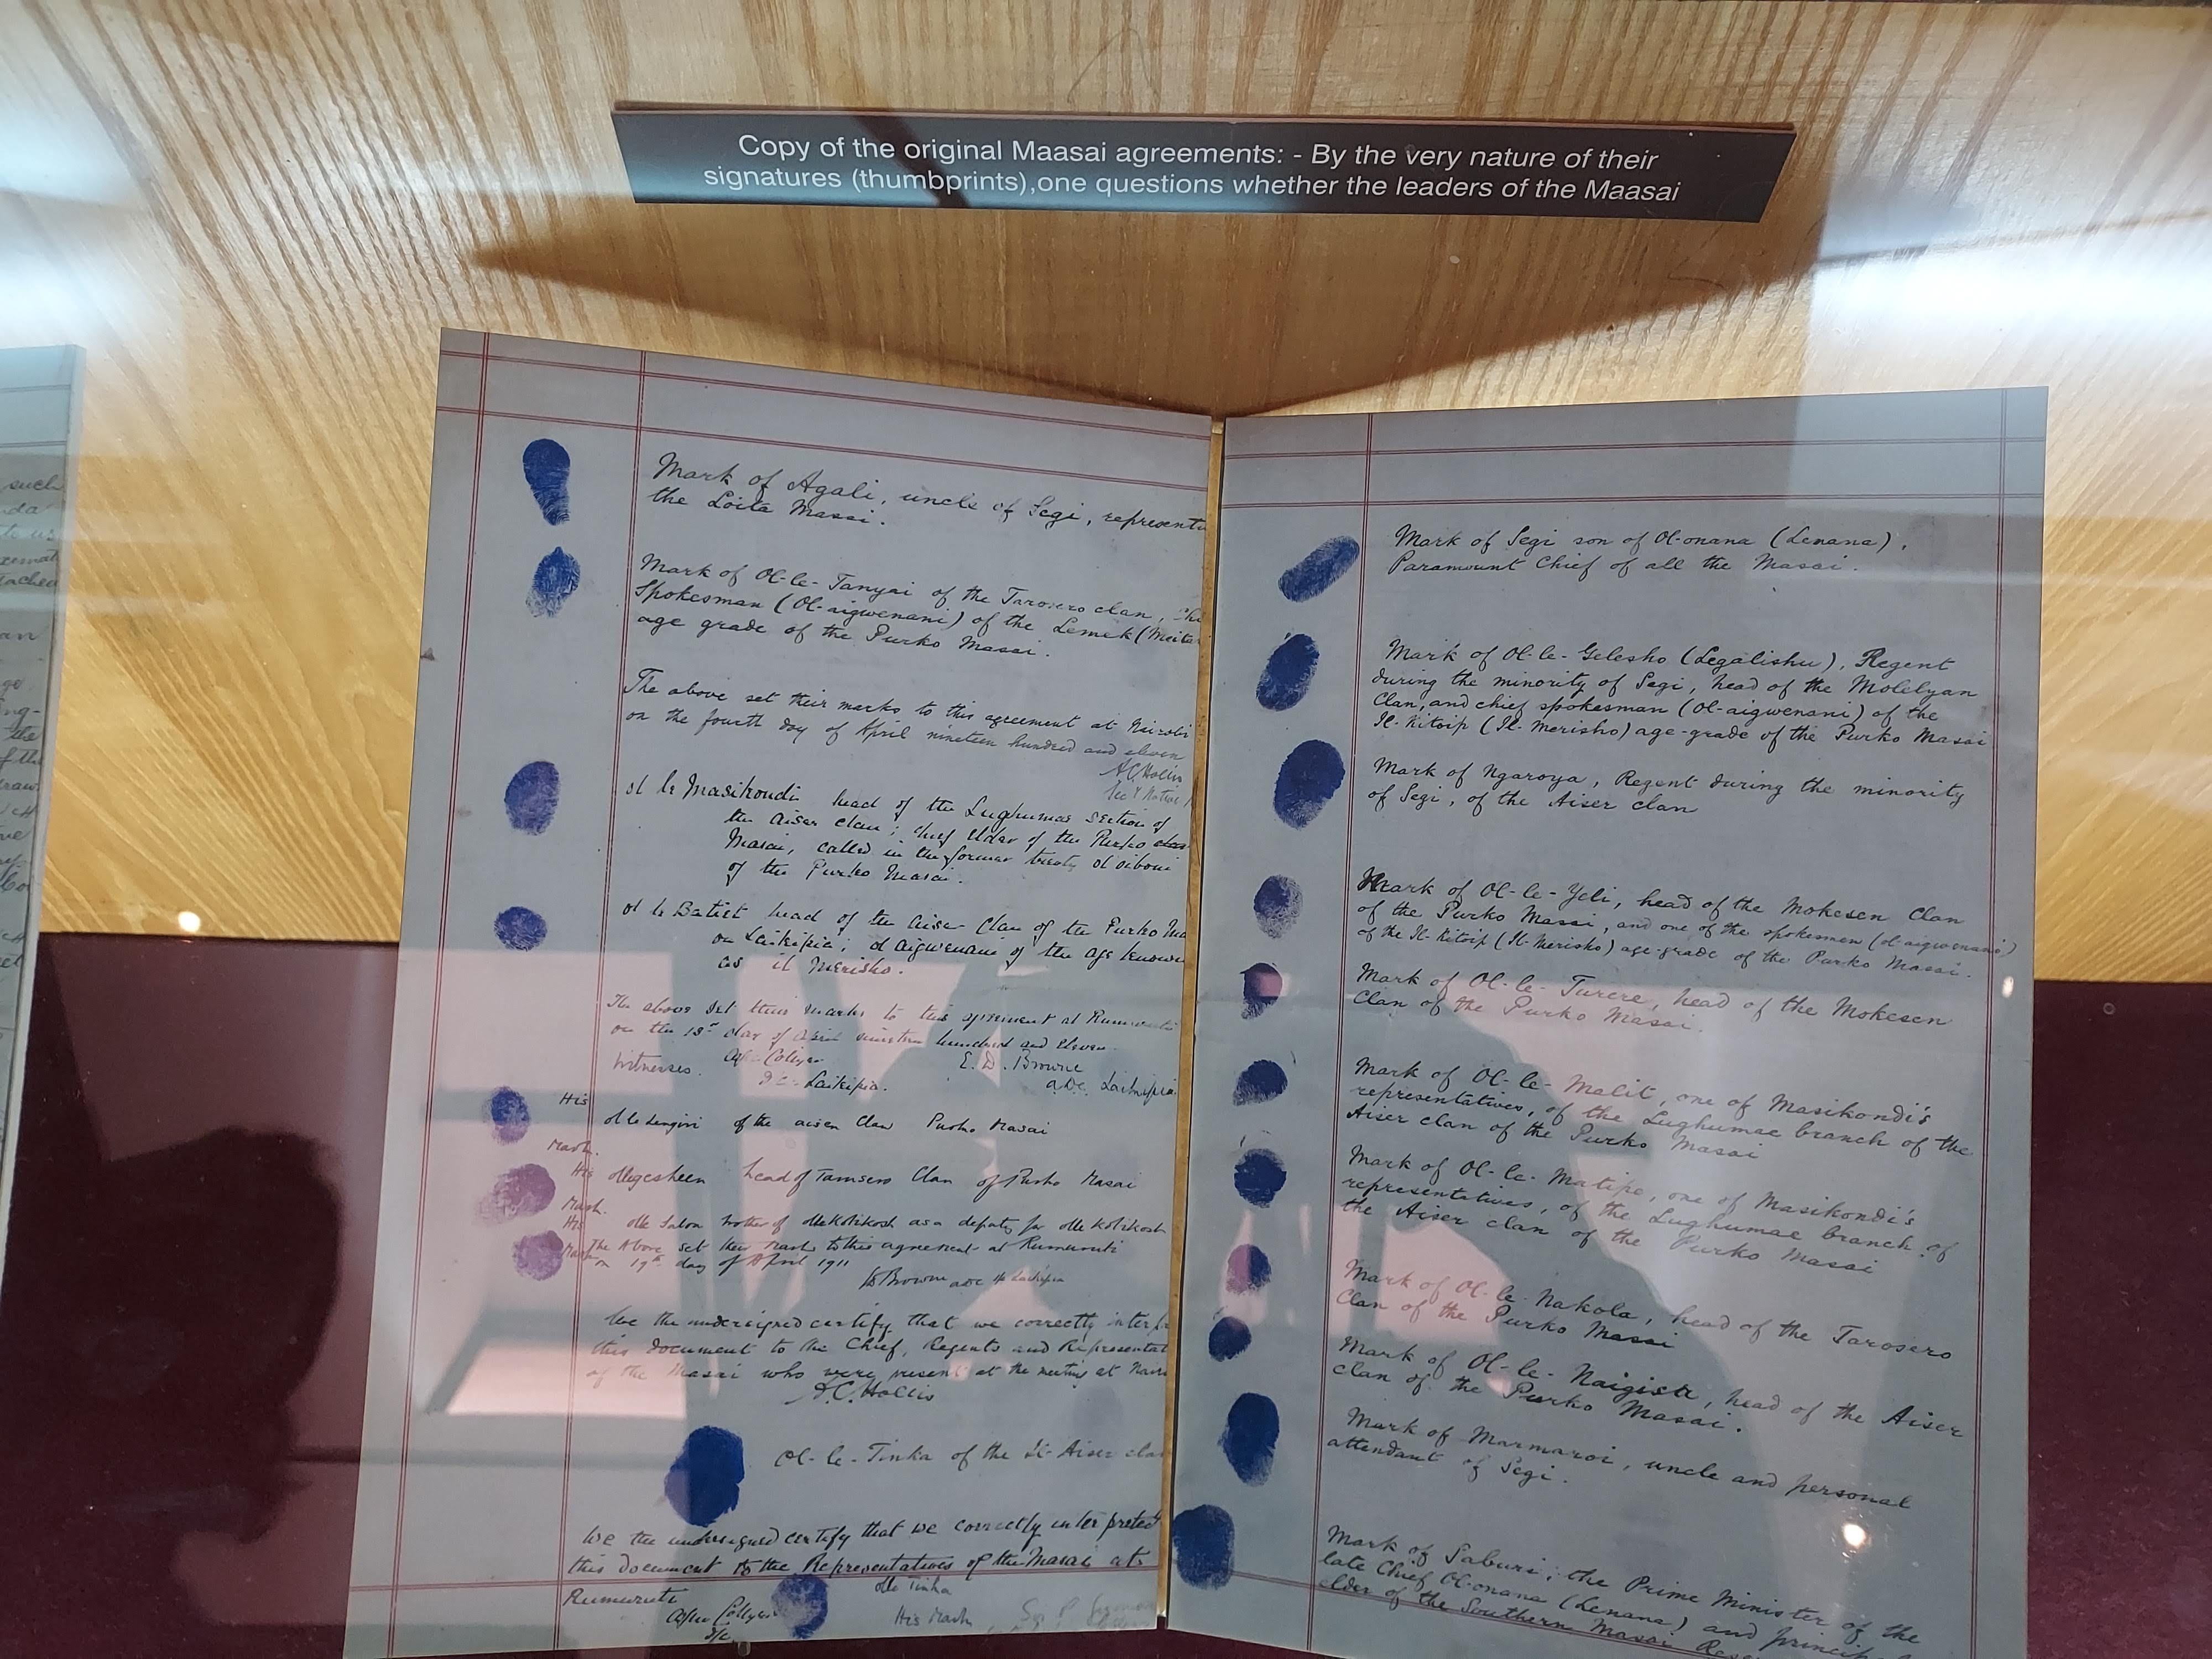 Copy of the original Maasai agreements: - By the very nature of their
signatures (thumbprints),one questions whether the leaders of the Maasai
such
Mark of Agali, uncle of Segi, represent
the Loita Masai.
Mark of Ol-le-Tanyai of the Tarosero clan,
Spokesman (Ol-aigwenani) of the Lemek (
age grade of the Purko Masai.
The above set their marks to this agreement at Nairobi
on the fourth day of April nineteen hundred and eleven
A C Hollis
ol le Masikondi head of the Lughumae section of
the aiser clan; chief elder of the Purko
Masai, called in the former treaty ol oiboni
of the Purko Masai.
ol le Batiet head of the aiser clan of the Purko
on Laikipia; ol aigwenani of the age known
as il Merisho.
The above set their marks to this agreement at Rumuruti
on the day of April nineteen hundred and eleven
Witnesses. E. D. Browne
D C Laikipia. a.D.C. Laikipia
His
olle Lengiri of the aiser Clan Purko Masai
Mark.
His ollegesheen head of Clan of Purko Masai
Mark.
His olle brother of olle Kotikosh as a deputy for olle Kotikosh
Mark The Above set their mark to this agreement at Rumuruti
on 19th day of April 1911
Browne aDC Laikipia
We the undersigned certify that we correctly
this document to the Chief, Regents and Representat
of the Masai who were present at the meeting at
A.C. Hollis
Ol-le-Tinka of the Il-Aiser
We the undersigned certify that we correctly interpreted
this document to the Representatives of the Masai at
Rumuruti olle Tinka
His Mark
Mark of Segi son of Ol-onana (Lenana),
Paramount Chief of all the Masai.
Mark of Ol-le-Gelesho (Legalishu), Regent
during the minority of Segi, head of the Molelyan
Clan, and chief spokesman (Ol-aigwenani) of the
Il-Kitoip (Il-Merisho) age-grade of the Purko Masai
Mark of Ngaroya, Regent during the minority
of Segi, of the Aiser clan
Mark of Ol-le-Yeli, head of the Mokesen Clan
of the Purko Masai, and one of the spokesmen (ol-aigwenani)
of the Il-Kitoip (Il-Merisho) age-grade of the Purko Masai.
Mark of Ol-le-Turere, head of the Mokesen
Clan of the Purko Masai.
Mark of Ol-le-Malit, one of Masikondi's
representatives, of the Lughumae branch of the
Aiser clan of the Purko Masai
Mark of Ol-le-Matipe, one of Masikondi's
representatives, of the Lughumae branch of
the Aiser clan of the Purko Masai
Mark of Ol-le-Nakola, head of the Tarosero
Clan of the Purko Masai
Mark of Ol-le-Naigisa, head of the Aiser
Clan of the Purko Masai.
Mark of Marmaroi, uncle and personal
attendant of Segi.
Mark of Saburi, the Prime Minister of the
late Chief Ol-onana (Lenana) and
elder of the Southern Masai